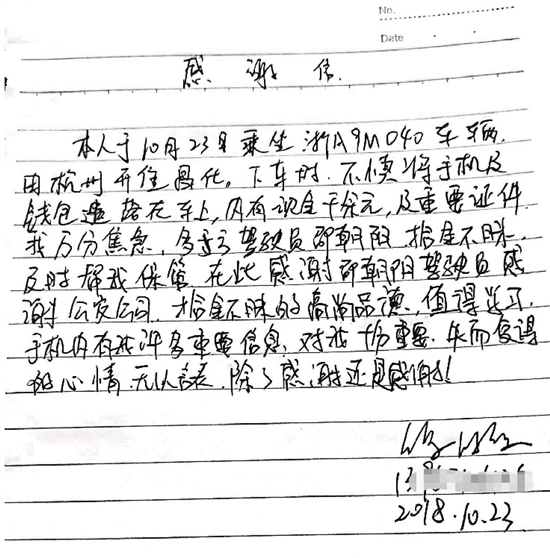 No.
Date
感 谢 信
本人于10月23日乘坐浙A9M040车辆
由杭州开往奉化。下车时.不慎将手机及
钱包遗落在车上,内有现金千余元,及重要证件.
我万分焦急,多亏驾驶员邵朝阳.拾金不昧.
及时帮我保管.在此感谢邵朝阳驾驶员感
谢公安公司.拾金不昧的高尚品德,值得学习,
手机内有我许多重要信息.对我十分重要.失而复得
的心情.无以言表.除了感谢还是感谢!
2018.10.23